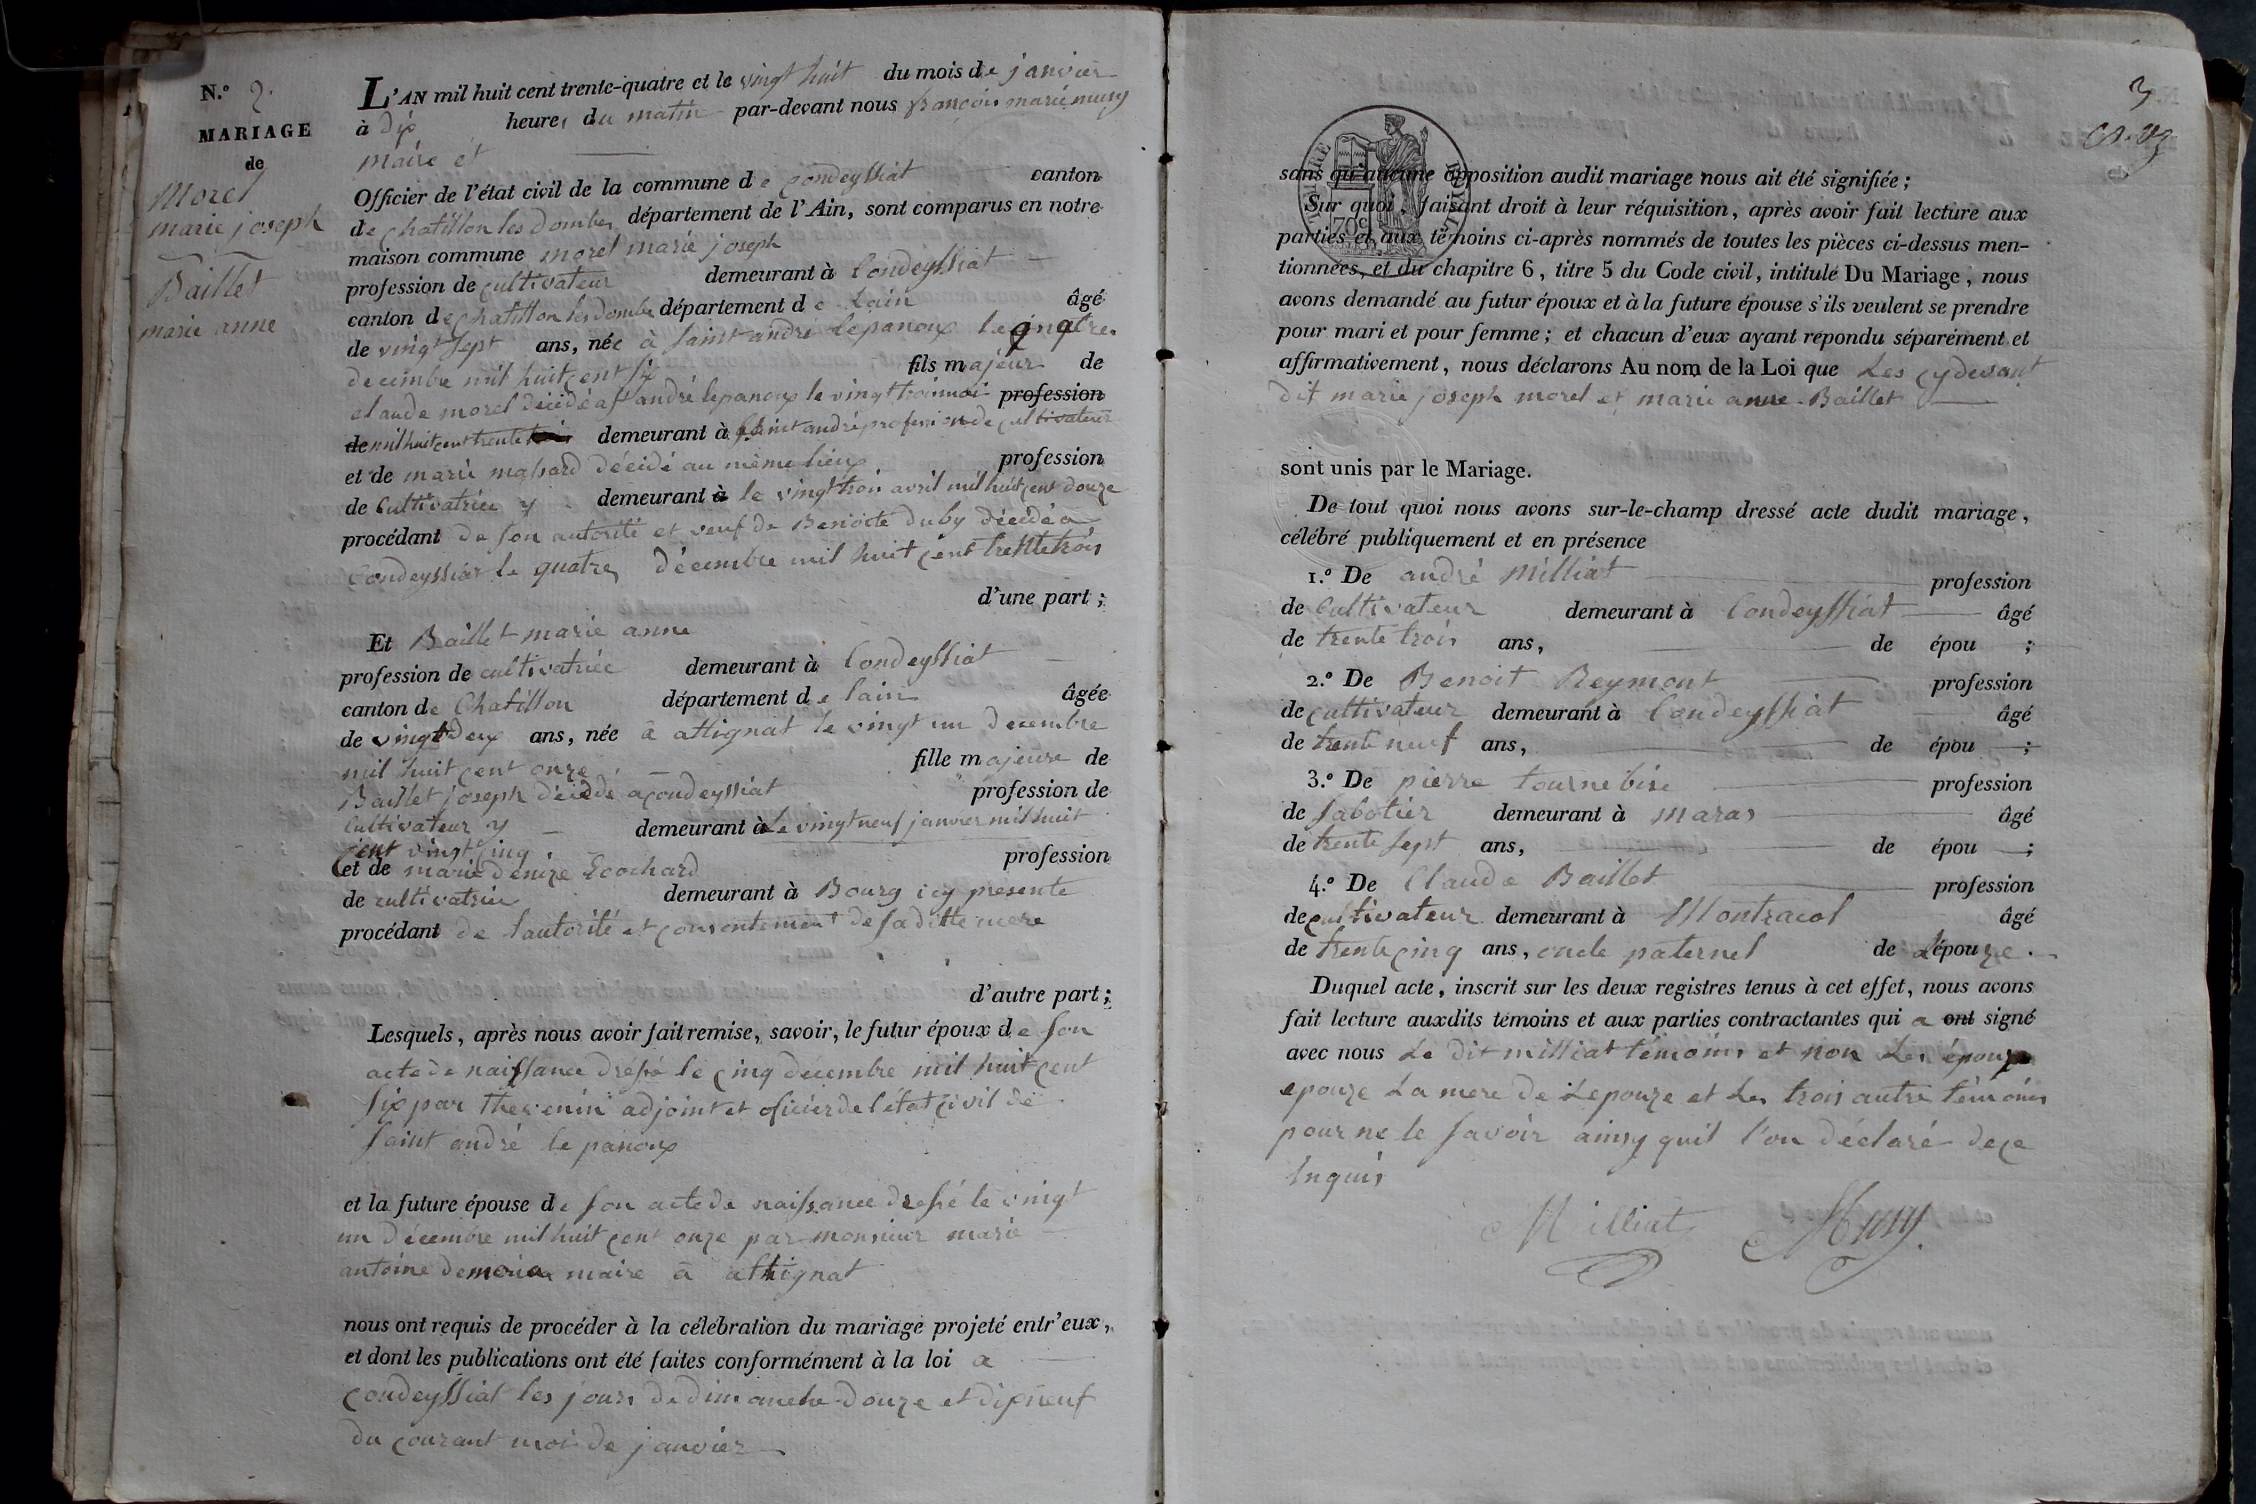 N.º 2.
MARIAGE
de
Morel
marie joseph
Baillet
marie anne
L'AN mil huit cent trente-quatre et le vingt huit du mois de janvier
à dix heures du matin par-devant nous françois marie mury
maire et
Officier de l'état civil de la commune de Condeyssiat canton
de Chatillon les dombes département de l'Ain, sont comparus en notre
maison commune morel marie joseph
profession de cultivateur demeurant à Condeyssiat
canton de Chatillon les dombe département de Lain âgé
de vingt sept ans, née à saint andré lepanoux le quatre
decembre mil huit cent six fils majeur de
claude morel décédé a st andré lepanoux le vingt trois mai profession
de mil huit cent trente trois demeurant à saint andré profession de cultivateur
et de marie massard décédé au même lieux profession
de Cultivatrice y demeurant à le vingt trois avril mil huit cent douze
procédant de son autorité et veuf de Benoite duby décédé a
Condeyssiat le quatre décembre mil huit cent trente trois
d'une part ;
Et Baillet marie anne
profession de cultivatrice demeurant à Condeyssiat
canton de Chatillon département de lain âgée
de vingt deux ans, née à attignat le vingt un decembre
mil huit cent onze fille majeure de
Baillet joseph décédé a condeyssiat profession de
Cultivateur y demeurant à Le vingt neuf janvier mil huit
cent vingt cinq
et de marie denize Ecochard profession
de cultivatrice demeurant à Bourg icy presente
procédant de lautorité et consentement de sa ditte mere
d'autre part ;
Lesquels, après nous avoir fait remise, savoir, le futur époux de son
acte de naissance dressé le cinq décembre mil huit cent
six par thevenin adjoint et oficier de l'état civil de
saint andré le panoux
et la future épouse de son acte de naissance dressé le vingt
un décembre mil huit cent onze par monsieur marie
antoine maire à attignat
nous ont requis de procéder à la célébration du mariage projeté entr'eux,
et dont les publications ont été faites conformément à la loi a
condeyssiat les jours de dimanche douze et dixneuf
du courant mois de janvier
3
sans qu'aucune opposition audit mariage nous ait été signifiée ;
Sur quoi, faisant droit à leur réquisition, après avoir fait lecture aux
parties et aux témoins ci-après nommés de toutes les pièces ci-dessus men-
tionnées, et du chapitre 6, titre 5 du Code civil, intitulé Du Mariage, nous
avons demandé au futur époux et à la future épouse s'ils veulent se prendre
pour mari et pour femme ; et chacun d'eux ayant répondu séparément et
affirmativement, nous déclarons Au nom de la Loi que Les cydevant
dit marie joseph morel et marie anne Baillet
sont unis par le Mariage.
De tout quoi nous avons sur-le-champ dressé acte dudit mariage,
célébré publiquement et en présence
1.º De andré Milliat profession
de Cultivateur demeurant à Condeyssiat âgé
de trente trois ans, de épou ;
2.º De Benoit Reymont profession
de cultivateur demeurant à Condeyssiat âgé
de trente neuf ans, de épou ;
3.º De pierre tournebise profession
de sabotier demeurant à maras âgé
de trente sept ans, de épou ;
4.º De Claude Baillet profession
de cultivateur demeurant à Montracol âgé
de trente cinq ans, oncle paternel de Lépouze.
Duquel acte, inscrit sur les deux registres tenus à cet effet, nous avons
fait lecture auxdits témoins et aux parties contractantes qui a ont signé
avec nous Le dit milliat témoins et non Les épouze
epouze La mere de Lepouze et Les trois autre témoins
pour ne le savoir ainsy quil l'on déclaré dece
Inquis
Milliat Mury